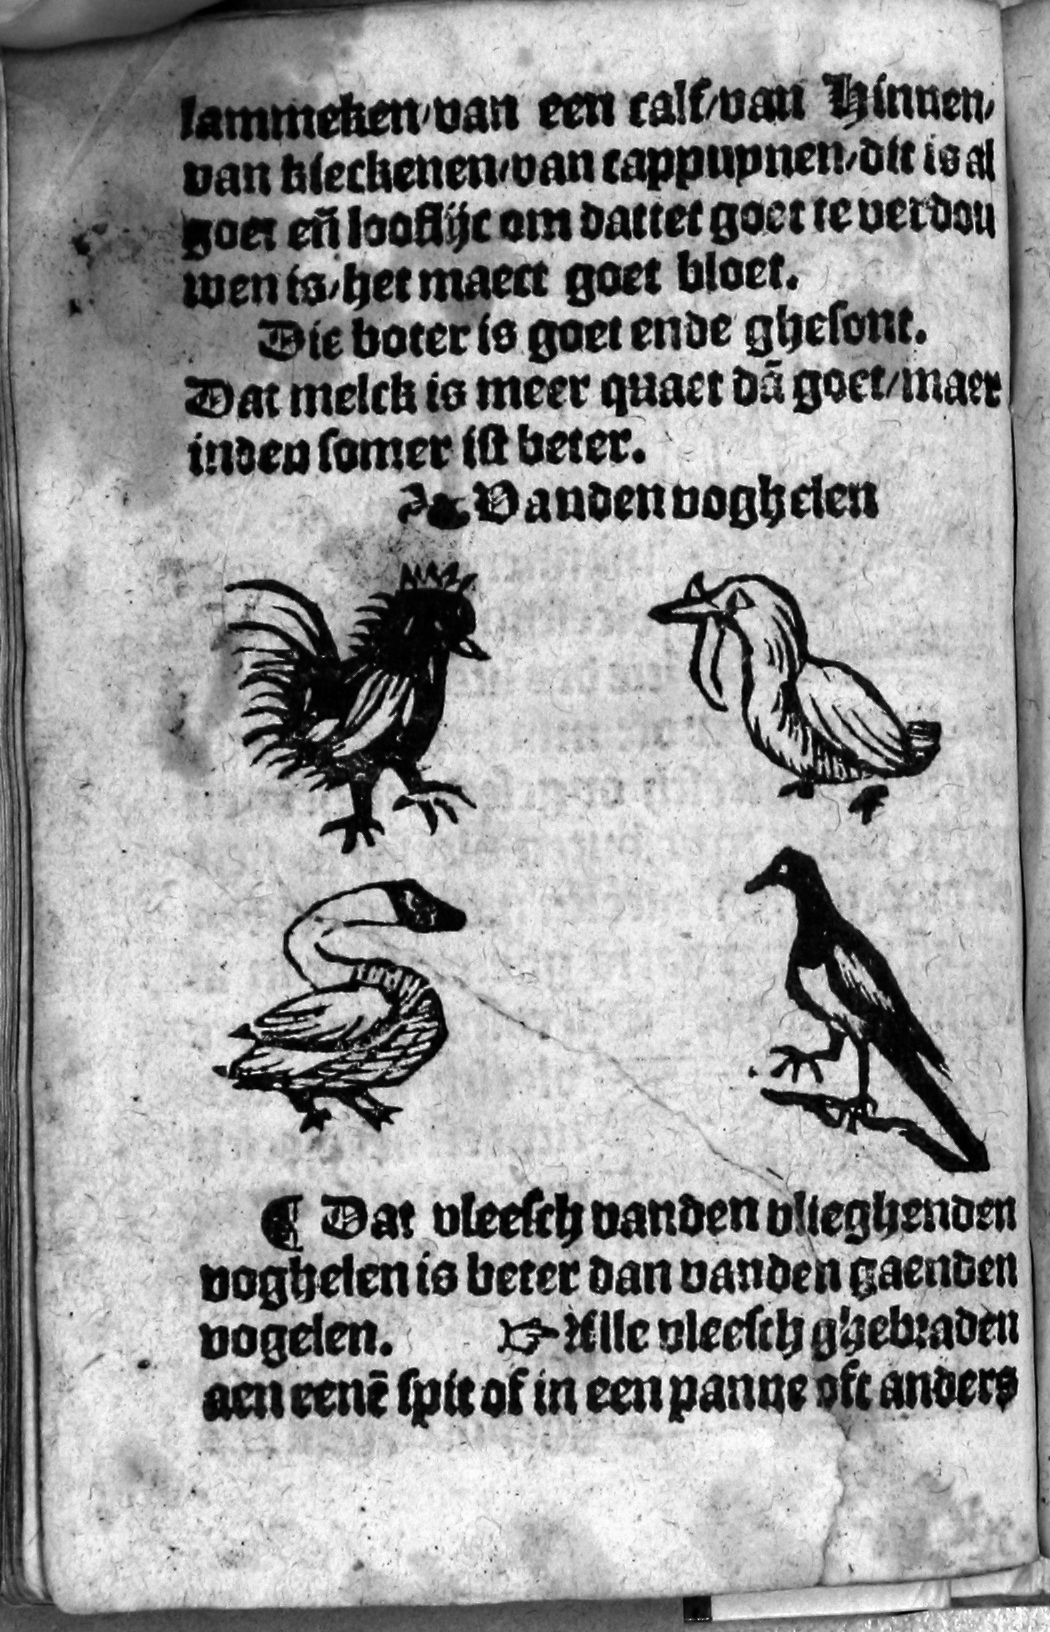 lammeken/van een calf/van Hinnen/
van kieckenen/van cappuynen/dit is al
goet en̄ looflijc om dattet goet te verdou
wen is/het maect goet bloet.
Die boter is goet ende ghesont.
Dat melck is meer quaet dā goet/maer
inden somer ist beter.
❧Vanden voghelen
¶ Dat vleesch vanden vlieghenden
voghelen is beter dan vanden gaenden
vogelen. ☞Alle vleesch ghebraden
aen eenē spit of in een panne oft anders